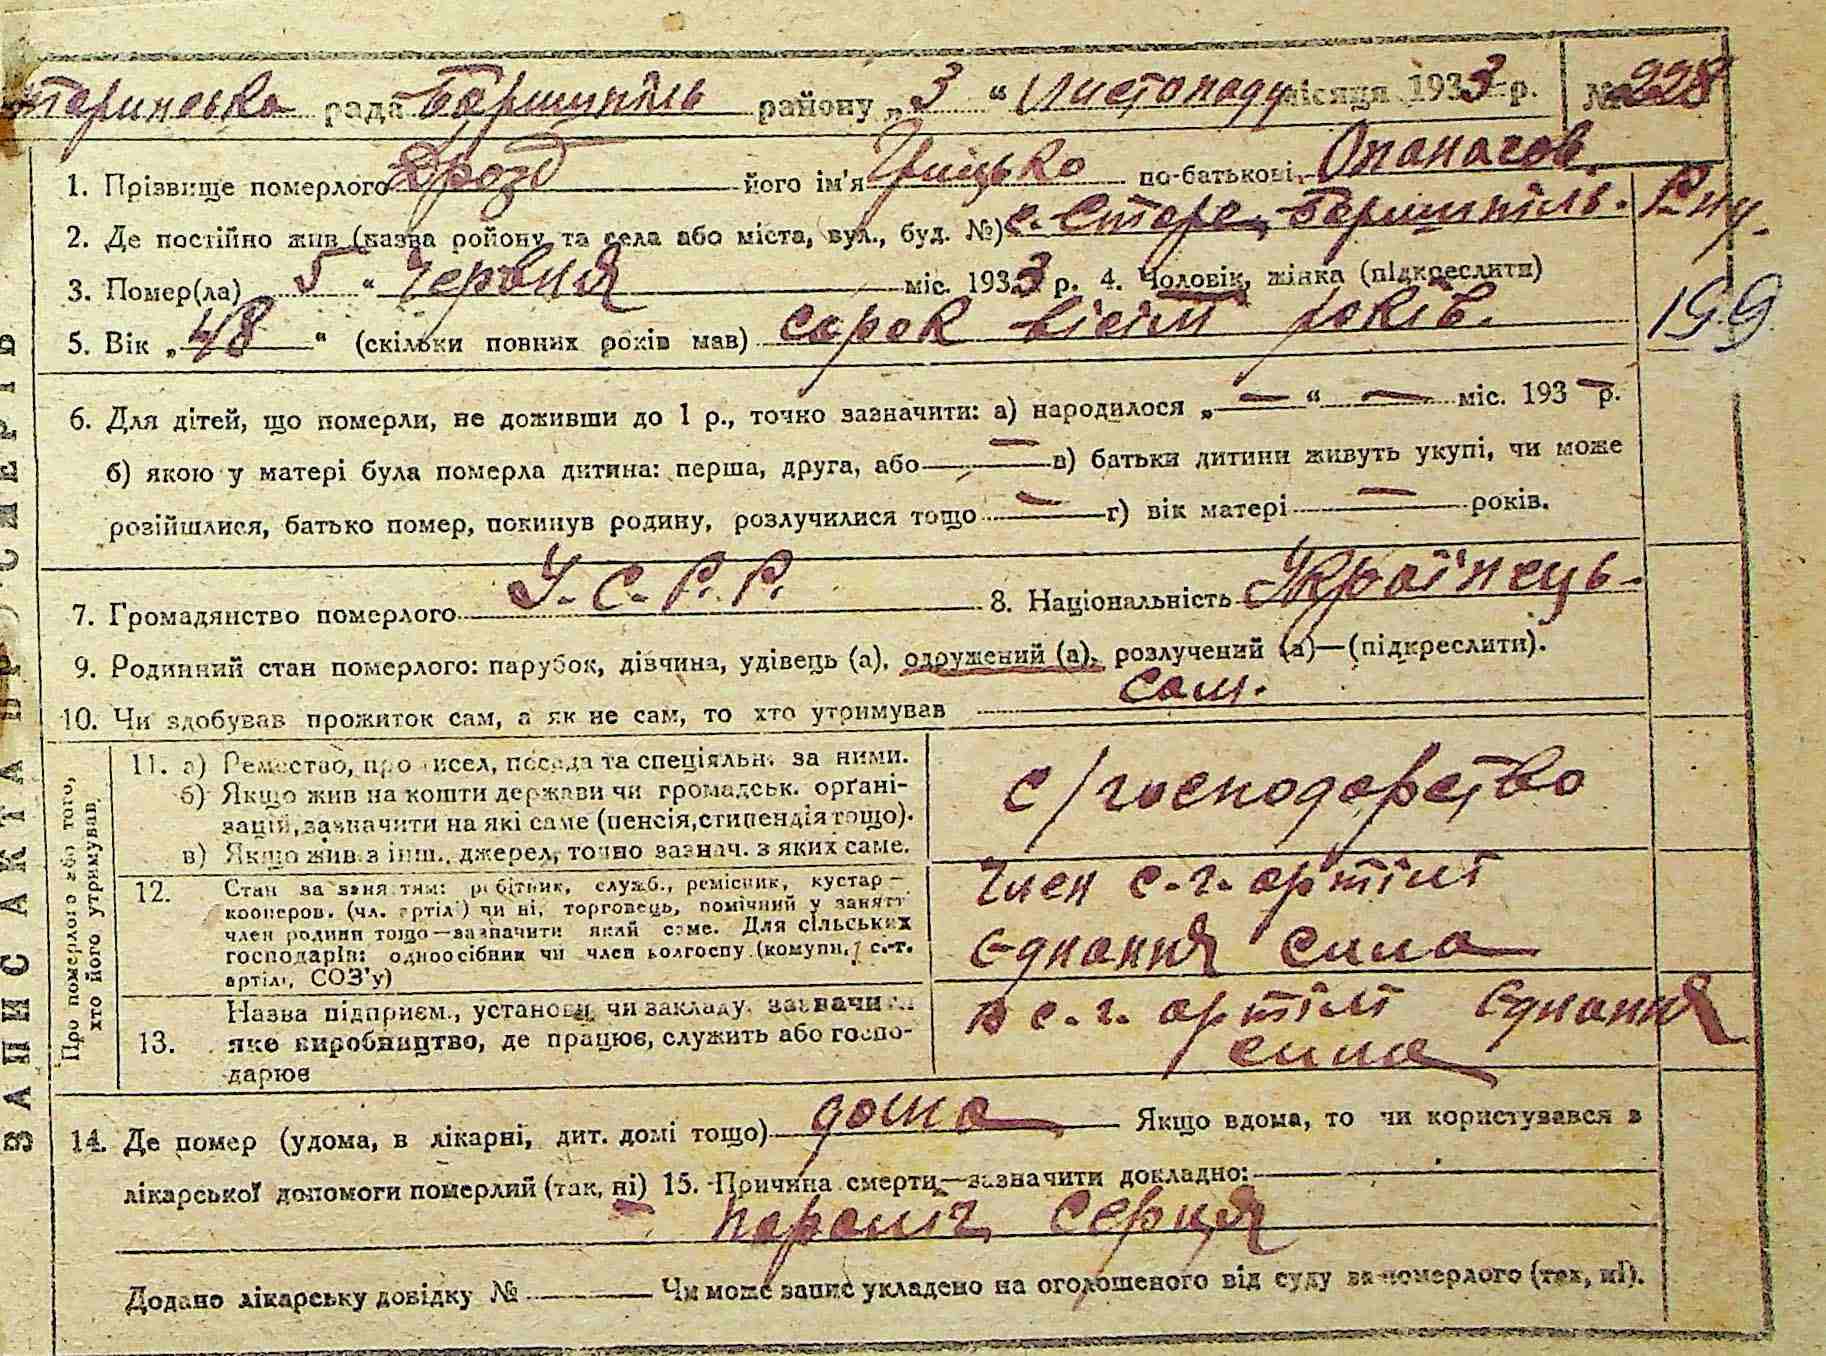 ЗАПИС АКТА ПРО СМЕРТЬ
теринська рада Боришпіль району „3“ листопаду місяця 1933 р. № 228
1. Прізвище померлого Дрозд його ім'я Грицько по-батькові Опанасов.
2. Де постійно жив (назва ройону та села або міста, вул., буд. №) с. Старе, Боришпіль.
3. Помер(ла) 5 “ червня міс. 1933 р. 4. Чоловік, жінка (підкреслити)
5. Вік „48“ (скільки повних років мав) сорок вісім років.
199
6. Для дітей, що померли, не доживши до 1 р., точно зазначити: а) народилося „—“ — міс. 193— р.
б) якою у матері була померла дитина: перша, друга, або — в) батьки дитини живуть укупі, чи може
розійшлися, батько помер, покинув родину, розлучилися тощо — г) вік матері — років.
7. Громадянство померлого У.С.Р.Р. 8. Національність Українець
9. Родинний стан померлого: парубок, дівчина, удівець (а), одружений (а), розлучений (а)—(підкреслити).
10. Чи здобував прожиток сам, а як не сам, то хто утримував сам.
Про померлого або того, хто його утримував.
11. а) Ремество, промисел, посада та спеціяльн. за ними.
б) Якщо жив на кошти держави чи громадськ. орґані-
зацій, зазначити на які саме (пенсія, стипендія тощо).
в) Якщо жив з інш. джерел, точно зазнач. з яких саме.
с/господарство
12. Стан за заняттям: робітник, служб., ремісник, кустар —
кооперов. (чл. артілі) чи ні, торговець, помічний у занятт
член родини тощо—зазначити який саме. Для сільських
господарів: одноосібник чи член колгоспу (комуни, с.-г.
артілі, СОЗ'у)
Член с.-г. артілі
Єднання сила
13. Назва підприєм., установи чи закладу, зазначити
яке виробництво, де працює, служить або госпо-
дарює
в с.-г. артілі Єднання
сила
14. Де помер (удома, в лікарні, дит. домі тощо) дома Якщо вдома, то чи користувався з
лікарської допомоги померлий (так, ні) 15. Причина смерти—зазначити докладно:
параліч серця
Додано лікарську довідку № — Чи може запис укладено на оголошеного від суду за померлого (так, ні).